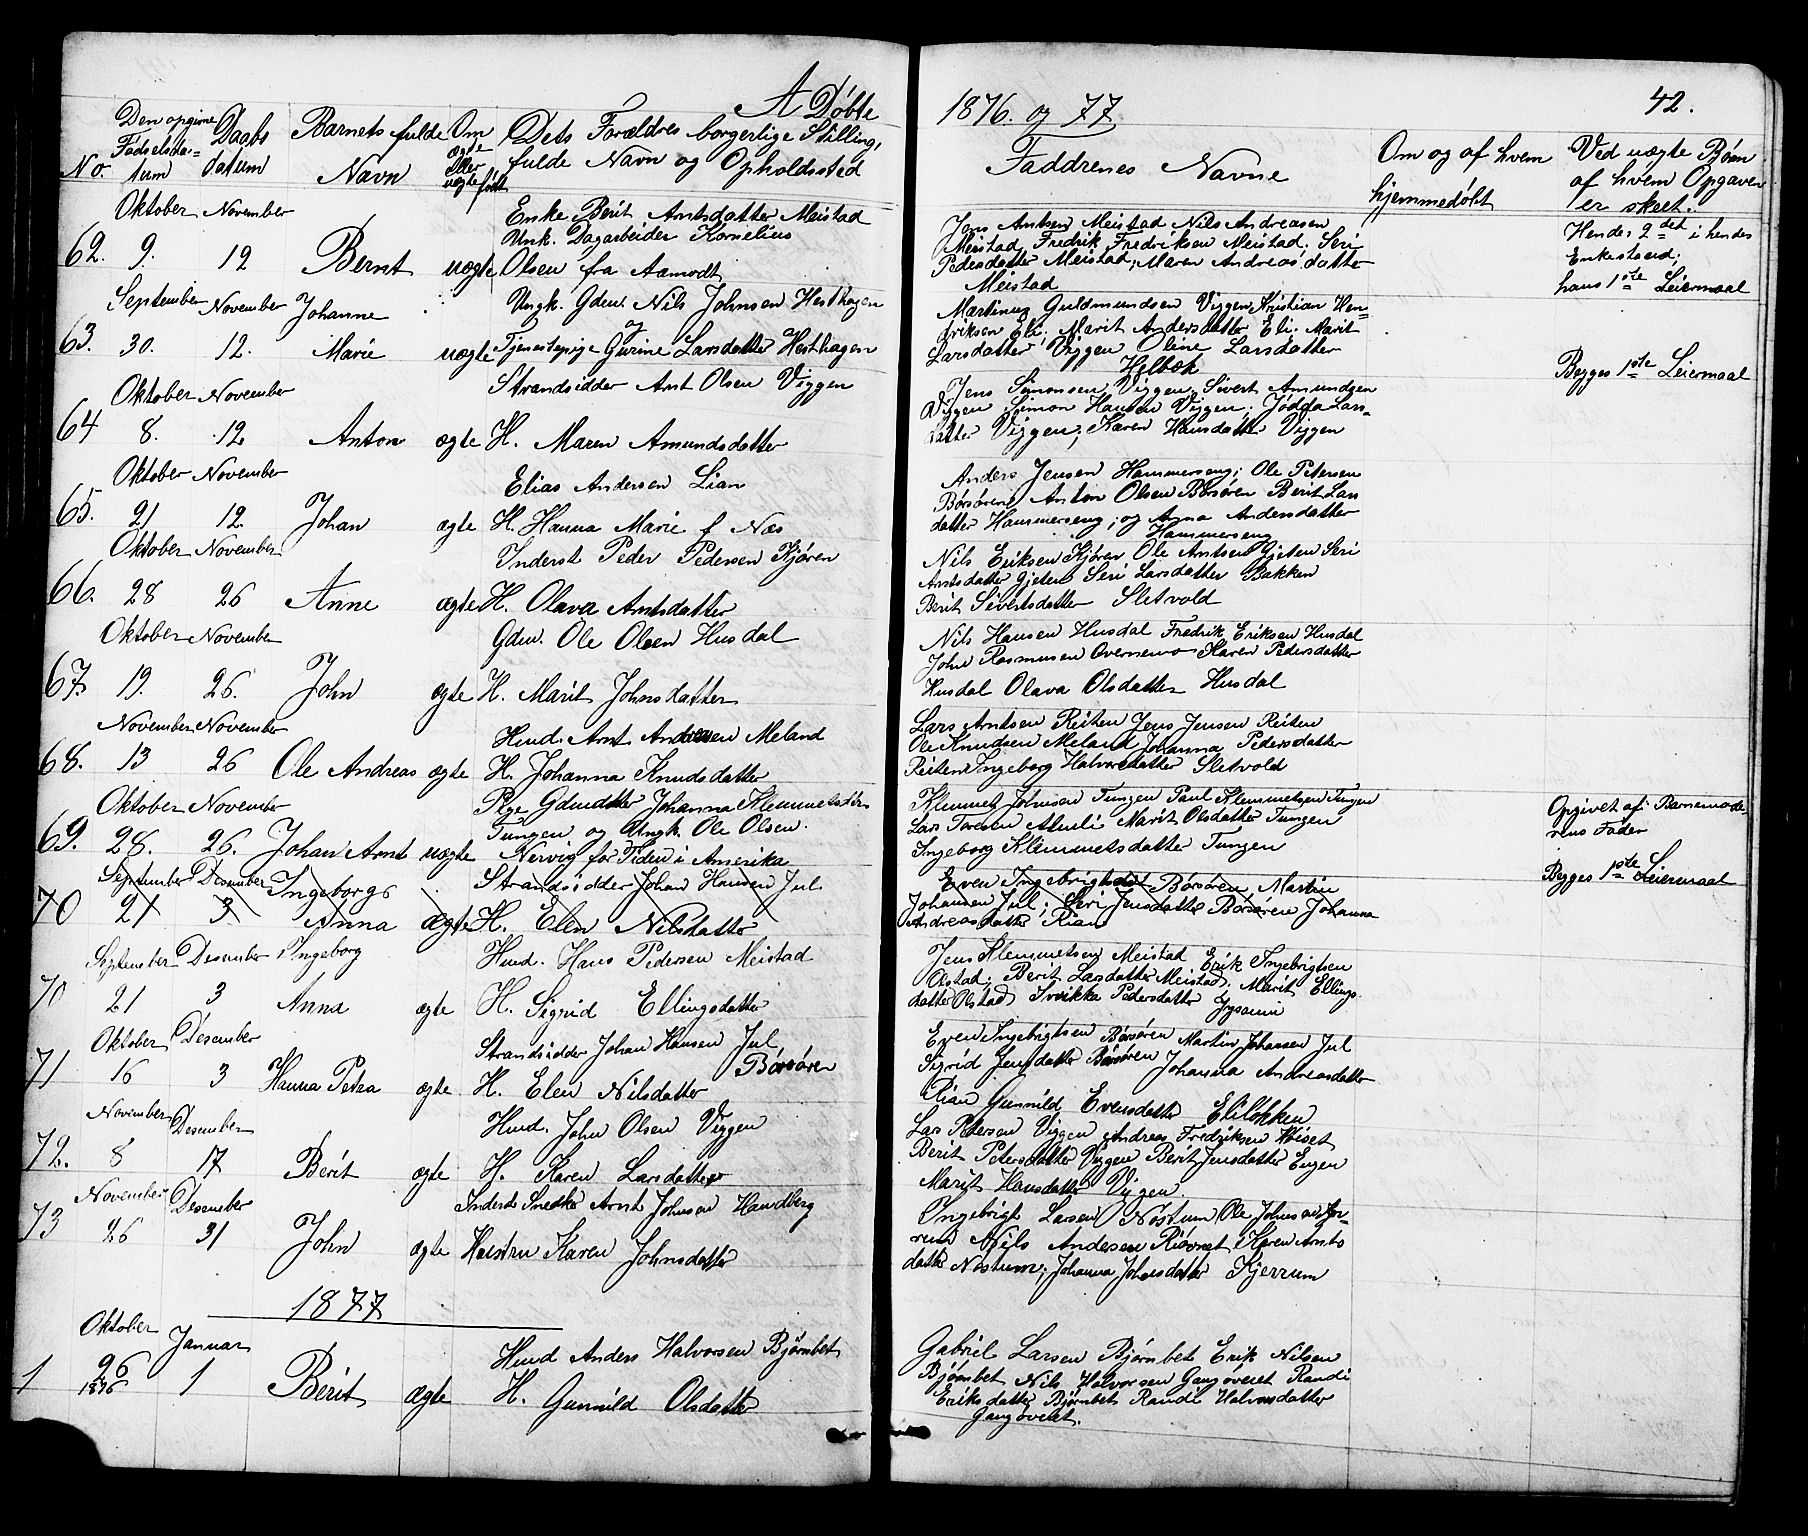 A Døbte
1876. og 77.
42.
No.
Den opgivne Fødselsda= tum
Daabs datum
Barnets fulde Navn
Om ægte eller uægte født
Dets Forældres borgerlige Stilling,
fulde Navn og Opholdssted
Faddrenes Navne
Om og af hvem
hjemmedøbt
Ved uægte Børn
af hvem Opgaven
er skeet.
Oktober November
Enke Berit Arntsdatter Meistad
62. 9. 12 Bernt uægte
Unk. Dagarbeider Kornelius
Olsen fra Aamodt
Arntsen Meistad Nils Andreasen
Meistad Fredrik Fredriksen Meistad. Seri
Pedersdatter Meistad; Maren Andreasdatter
Meistad
Hendes 2det i hendes
Enkestand;
hans 1ste Leiermaal
September November
Ungk. Gdem. Nils Johnsen Hesthagen
og
63. 30. 12. Johanne Marie uægte
Tjenestepige Gurine Larsdatter Hesthagen
Martinus Guldmundsen Viggen Kristian Hen=
driksen Eli; Marit Andersdatter Eli. Marit
Larsdatter Viggen Oline Larsdatter
Helbæk
Begges 1ste Leiermaal
Oktober November
Strandsidder Arnt Olsen Viggen
64 8. 12 Anton ægte H. Maren Amundsdatter
Jens Simonsen Viggen, Sivert Amundsen
Viggen Simon Hansen Viggen; Lars=
datter Viggen; Karen Hansdatter Viggen
Oktober November
Elias Andersen Lian
65. 21 12 Johan ægte H. Hanna Marie f Næs
Anders Jensen Hammerseng; Ole Petersen
Børsøren; Anton Olsen Børsøren Berit Lars
datter Hammerseng; og Anna Andersdatter
Hammerseng
Oktober November
Inderst Peder Pedersen Kjøren
66. 28 26 Anne ægte H. Olava Arntsdatter
Nils Eriksen Kjøren Ole Arntsen Gjeten Seri
Arntsdatter Gjeten Seri Larsdatter Bakken
Berit Sivertsdatter Sletvold
Oktober November
Gdm. Ole Olsen Husdal
67. 19. 26. John ægte H. Marit Johnsdatter
Nils Hansen Husdal Fredrik Eriksen Husdal
John Rasmusen Overnemo Karen Pedersdatter
Husdal Olava Olsdatter Husdal
November November
Husd. Arnt Andersen Meland
68. 13 26 Ole Andreas ægte H. Johanna Knudsdatter
Lars Arntsen Reiten Jens Jensen Reiten
Ole Knudsen Meland Johanna Pedersdatter
Reiten Ingeborg Halvorsdatter Sletvold
Oktober November
Pige Gdmdatter Johanna Klemmetsdatr
Tungen og Ungk. Ole Olsen.
69. 28. 26. Johan Arnt uægte Nervig for Tiden i Amerika
Klemmet Johnsen Tungen Paul Klemmetsen Tungen
Lars Toresen Marit Olsdatter Tungen
Ingeborg Klemmetsdatter Tungen
Opgivet af Barnemode-
rens Fader
Begges 1ste Leiermaal
September Desember
Strandsidder Johan Hansen Jul
70 21 3 Ingeborg Anna ægte H. Elen Nilsdatter
Even Ingebrigtsen Børsøren Martin
Johansen Jul; Seri Jensdatter Børsøren Johanna
Andreasdatter Rian
September Desember
Husd. Hans Pedersen Meistad
70 21 3 Ingeborg Anna ægte H. Sigrid Ellingsdatter
Jens Klemmetsen Meistad Erik Ingebrigtsen
Olstad; Berit Larsdatter Meistad. Marit Ellings
datter Olstad Pedersdatter
Oktober Desember
Strandsidder Johan Hansen Jul
Børsøren
71 16 3 Hanna Petra ægte H. Elen Nilsdatter
Even Ingebrigtsen Børsøren Martin Johansen Jul
Sigrid Jensdatter Børsøren Johanna Andreasdatter
Rian Gunnild Evensdatter
November Desember
Husd. John Olsen Viggen
72. 8 17 Berit ægte H. Karen Larsdatter
Lars Petersen Viggen Andreas Fredriksen
Berit Petersdatter Viggen Berit Jensdatter
Marit Hansdatter Viggen
November Desember
Inderst Snedker Arnt Johnsen Handberg
73 26 31 John ægte Hustru Karen Johnsdatter
Ingebrigt Larsen Nostum Ole Johnsen
Nils Andersen Karen Arnts
datter Nostum; Johanna Johnsdatter Kjerrum
1877
Oktober Januar
Husd Anders Halvorsen Bjørnbet
1 26 1876 1 Berit ægte H. Gunnild Olsdatter
Gabriel Larsen Bjørnbet Erik Nilsen
Bjørnbet Nils Halvorsen Gangøveret Randi
Eriksdatter Bjørnbet Randi Halvorsdatter
Gangøveret.